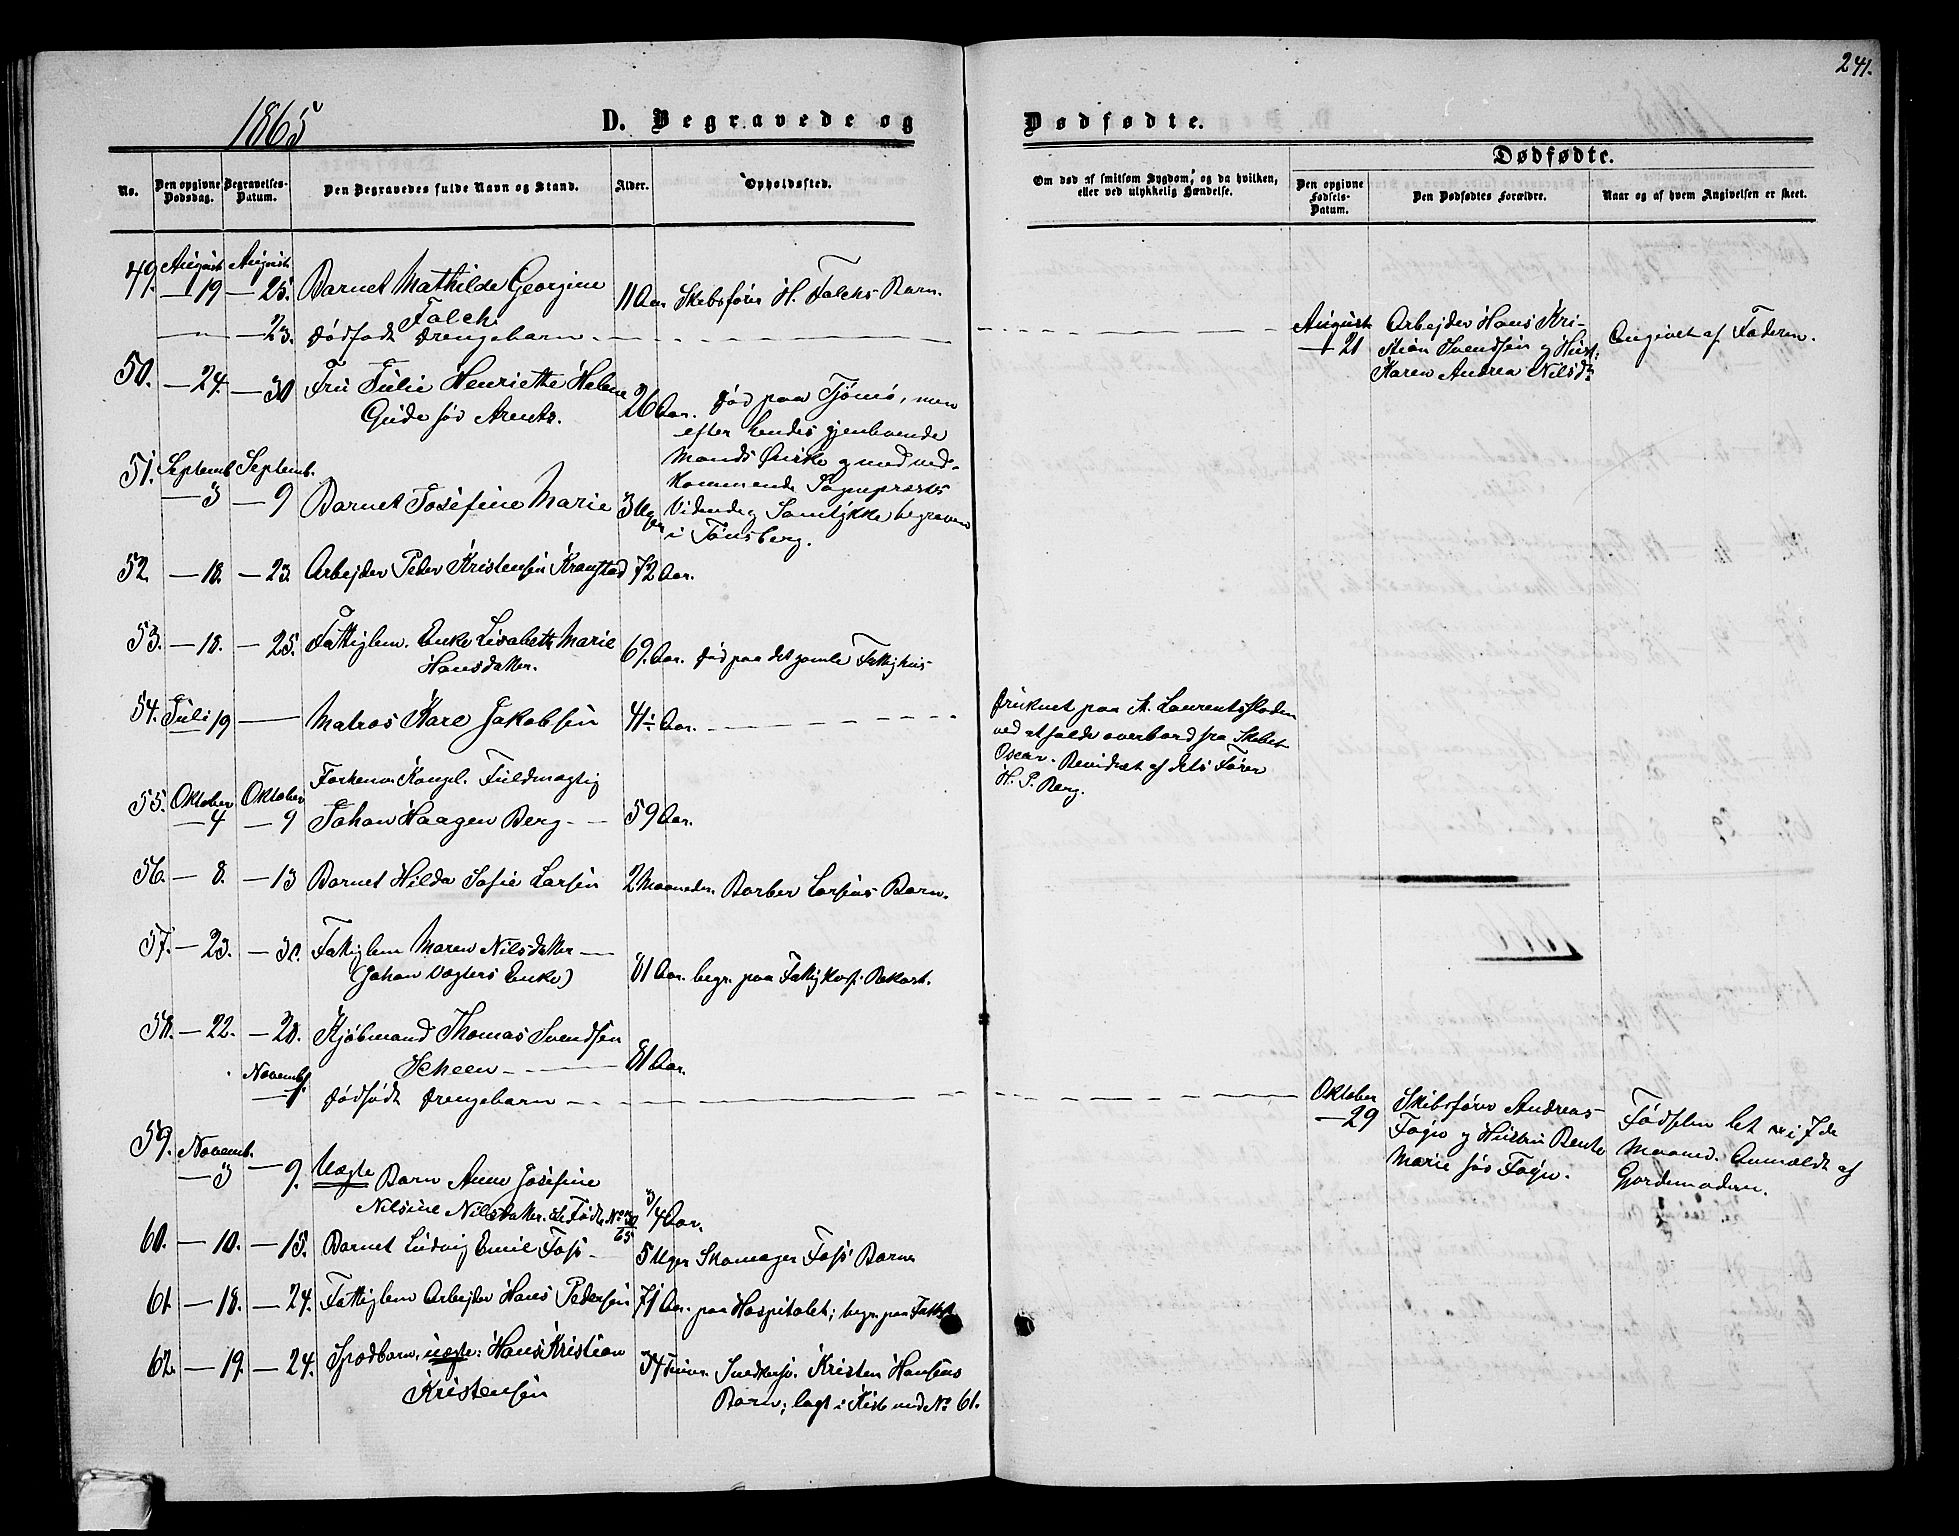 241.
1865
D. Begravede og
Dødfødte.
Dødfødte.
No.
Den opgivne Dødsdag.
Begravelses-Datum.
Den Begravedes fulde Navn og Stand.
Alder.
Opholdssted.
Om død af smitsom Sygdom, og da hvilken, eller ved ulykkelig Hændelse.
Den opgivne Fødsels-Datum.
Den Dødfødtes Forældre.
Naar og af hvem Angivelsen er skeet.
49. August August
— 19 — 25. Barnet Mathilde Georgine 11 Aar Skibsfører H. Falchs Barn.
Falch.
— — 23. Dødfødt Drengebarn — — —
August
— 21
Arbejder Hans Kri-
stian Svendsen og Hust:
Karen Andrea Nilsd:
Angivet af Faderen.
50. — 24. — 30 Fru Julie Henriette Helene
Gude fød Arentz. 26 Aar. Død paa Tjømø, men
efter hendes gjenlevende
Mands Ønske og med ved-
kommende Sogneprests
Vidende og Samtykke begraven
i Tønsberg.
51. Septemb. Septemb.
— 3 — 9 Barnet Josefine Marie 3 Uger
52. — 18. — 23. Arbejder Peder Kristensen Kranstad 72 Aar.
53. — 18. — 25. Fattiglem. Enke Lisabeth Marie
Hansdatter. 69. Aar. Død paa det gamle Fattighus
54. Juli 19 — Matros Kare Jakobsen 41½ Aar. — — —
Druknet paa St. Laurentsfloden
ved at falde overbord fra Skibet
Oscar. Bevidnet af dets Fører
H. P. Berg.
55. Oktober Oktober Forhenv. Kongl. Fuldmægtig
— 4 — 9 Johan Haagen Berg — — 59 Aar.
56. — 8. — 13 Barnet Hilda Sofie Larsen 2 Maaneder. Barber Larsens Barn.
57. — 23. — 30. Fattiglem Maren Nilsdatter —
(Johan Vægters Enke) 81 Aar. begr. paa Fattigkas: Bekost.
58. — 22. — 28. Kjøbmand Thomas Svendsen
Scheen — — 81 Aar.
Novemb.
— 1 Dødfødt Drengebarn — — —
Oktober
— 29
Skibsfører Andreas
Fogn og Hustru Bente
Marie fød Fogn.
Fødselen let i 7de
Maaned. Anmeldt af
Gjordemoderen.
59. Novemb.
— 3 — 9. Uægte Barn Anne Josefine
Nilsine Nilsdatter. se Fødte No 30/65 3/4 Aar.
60. — 10. — 15. Barnet Ludvig Emil Foss — 5 Uger Skomager Foss' Barn
61. — 18. — 24. Fattiglem Arbejder Hans Pedersen 71 Aar. paa Hospitalet; begr. paa
62. — 19. — 24. Spædbarn, uægte: Hans Kristian
Kristensen 34 Timer. Kristen Hansens
Barn; lagt i Kiste med No 61.
1866